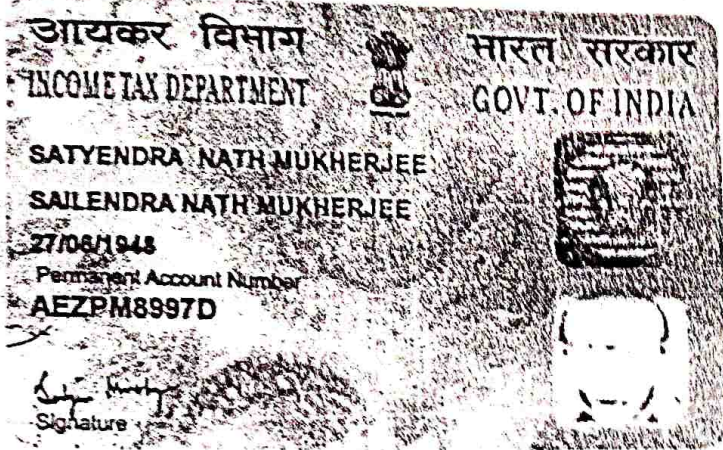 आयकर विभाग
भारत सरकार
INCOME TAX DEPARTMENT
GOVT. OF INDIA
SATYENDRA NATH MUKHERJEE
SAILENDRA NATH MUKHERJEE
27/06/1948
Permanent Account Number
AEZPM8997D
Signature